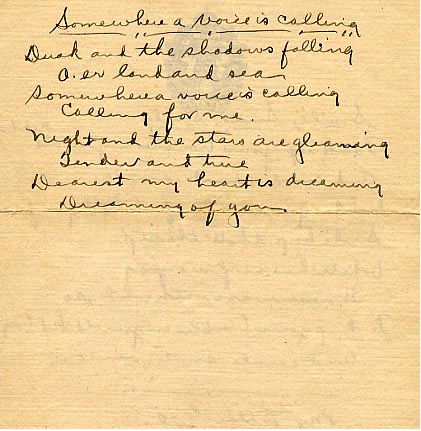 Somewhere a Voice is Calling
Dusk and the shadows falling
O.er land and sea
Somewhere a voice is calling
Calling for me.
Night and the stars are gleaming
Tender and true
Dearest my heart is dreaming
Dreaming of you